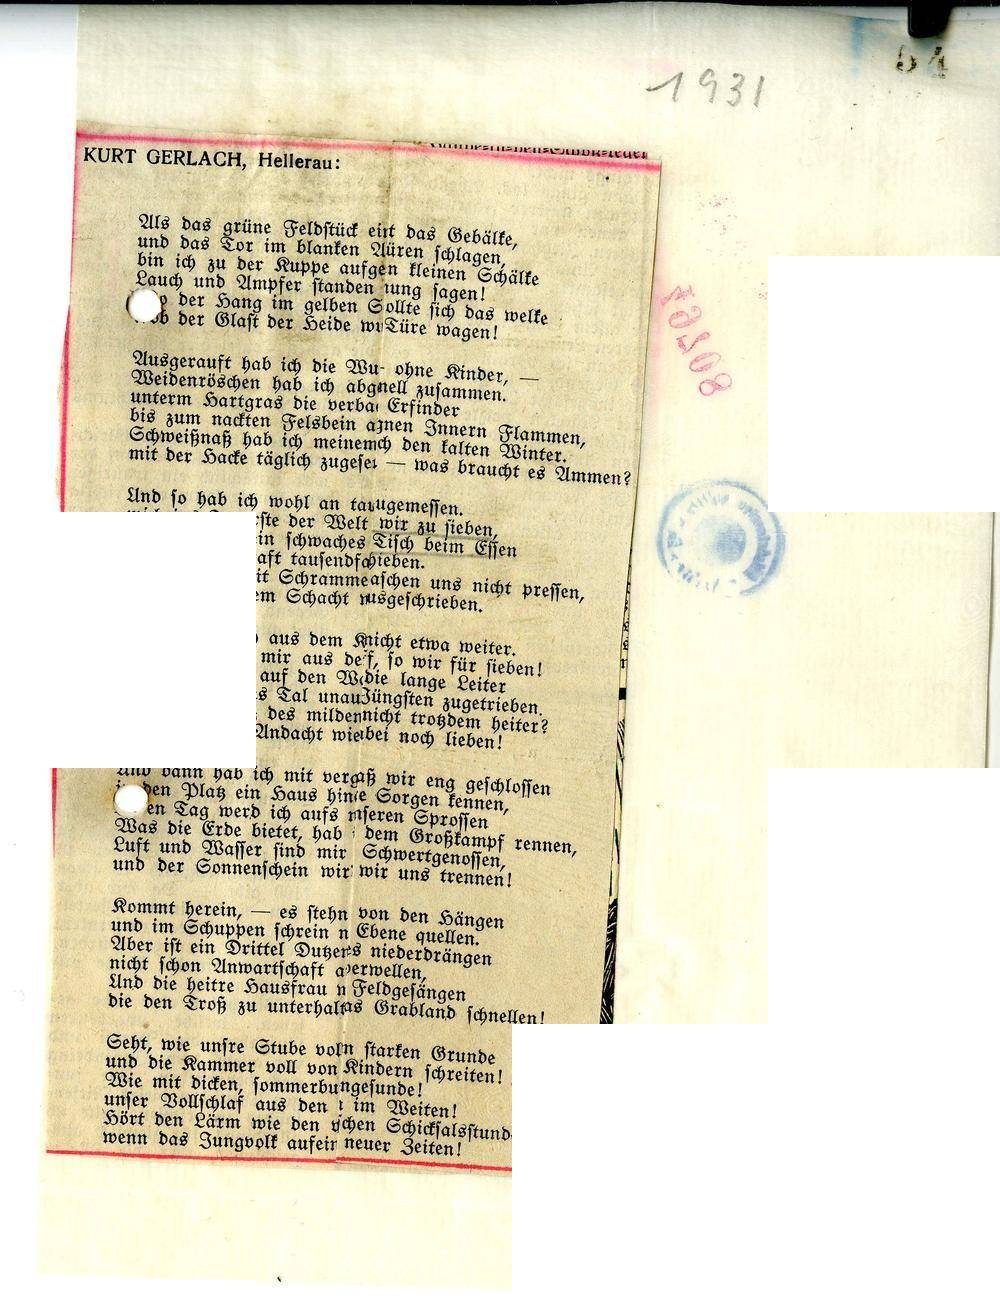 54
1931
KURT GERLACH, Hellerau:
Als das grüne Feldstück eirt das Gebälke,
und das Tor im blanken Aüren schlagen,
bin ich zu der Kuppe aufgen kleinen Schälke
Lauch und Ampfer standen tung sagen!
der Hang im gelben Sollte sich das welke
ob der Glast der Heide wiTüre wagen!
Ausgerauft hab ich die Wu- ohne Kinder, —
Weidenröschen hab ich abgnell zusammen.
unterm Hartgras die verba Erfinder
bis zum nackten Felsbein anen Innern Flammen,
Schweißnaß hab ich meinemch den kalten Winter.
mit der Hacke täglich zugese — was braucht es Ammen?
Und so hab ich wohl an taugemessen.
rste der Welt wir zu sieben,
in schwaches Tisch beim Essen
aft tausendfchieben.
it Schrammeaschen uns nicht pressen,
em Schacht ausgeschrieben.
aus dem Knicht etwa weiter.
mir aus def, so wir für sieben!
auf den Wdie lange Leiter
s Tal unauJüngsten zugetrieben.
des mildennicht trotzdem heiter?
Andacht wiebei noch lieben!
Und dann hab ich mit vergaß wir eng geschlossen
den Platz ein Haus hinie Sorgen kennen,
en Tag werd ich aufs nseren Sprossen
Was die Erde bietet, hab dem Großkampf rennen,
Luft und Wasser sind mir Schwertgenossen,
und der Sonnenschein wir wir uns trennen!
Kommt herein, — es stehn von den Hängen
und im Schuppen schrein n Ebene quellen.
Aber ist ein Drittel Dutzers niederdrängen
nicht schon Anwartschaft aerwellen,
Und die heitre Hausfrau n Feldgesängen
die den Troß zu unterhaltas Grabland schnellen!
Seht, wie unsre Stube voln starken Grunde
und die Kammer voll von Kindern schreiten!
Wie mit dicken, sommerbungesunde!
unser Vollschlaf aus den im Weiten!
Hört den Lärm wie den schen Schicksalsstund
wenn das Jungvolk aufein neuer Zeiten!